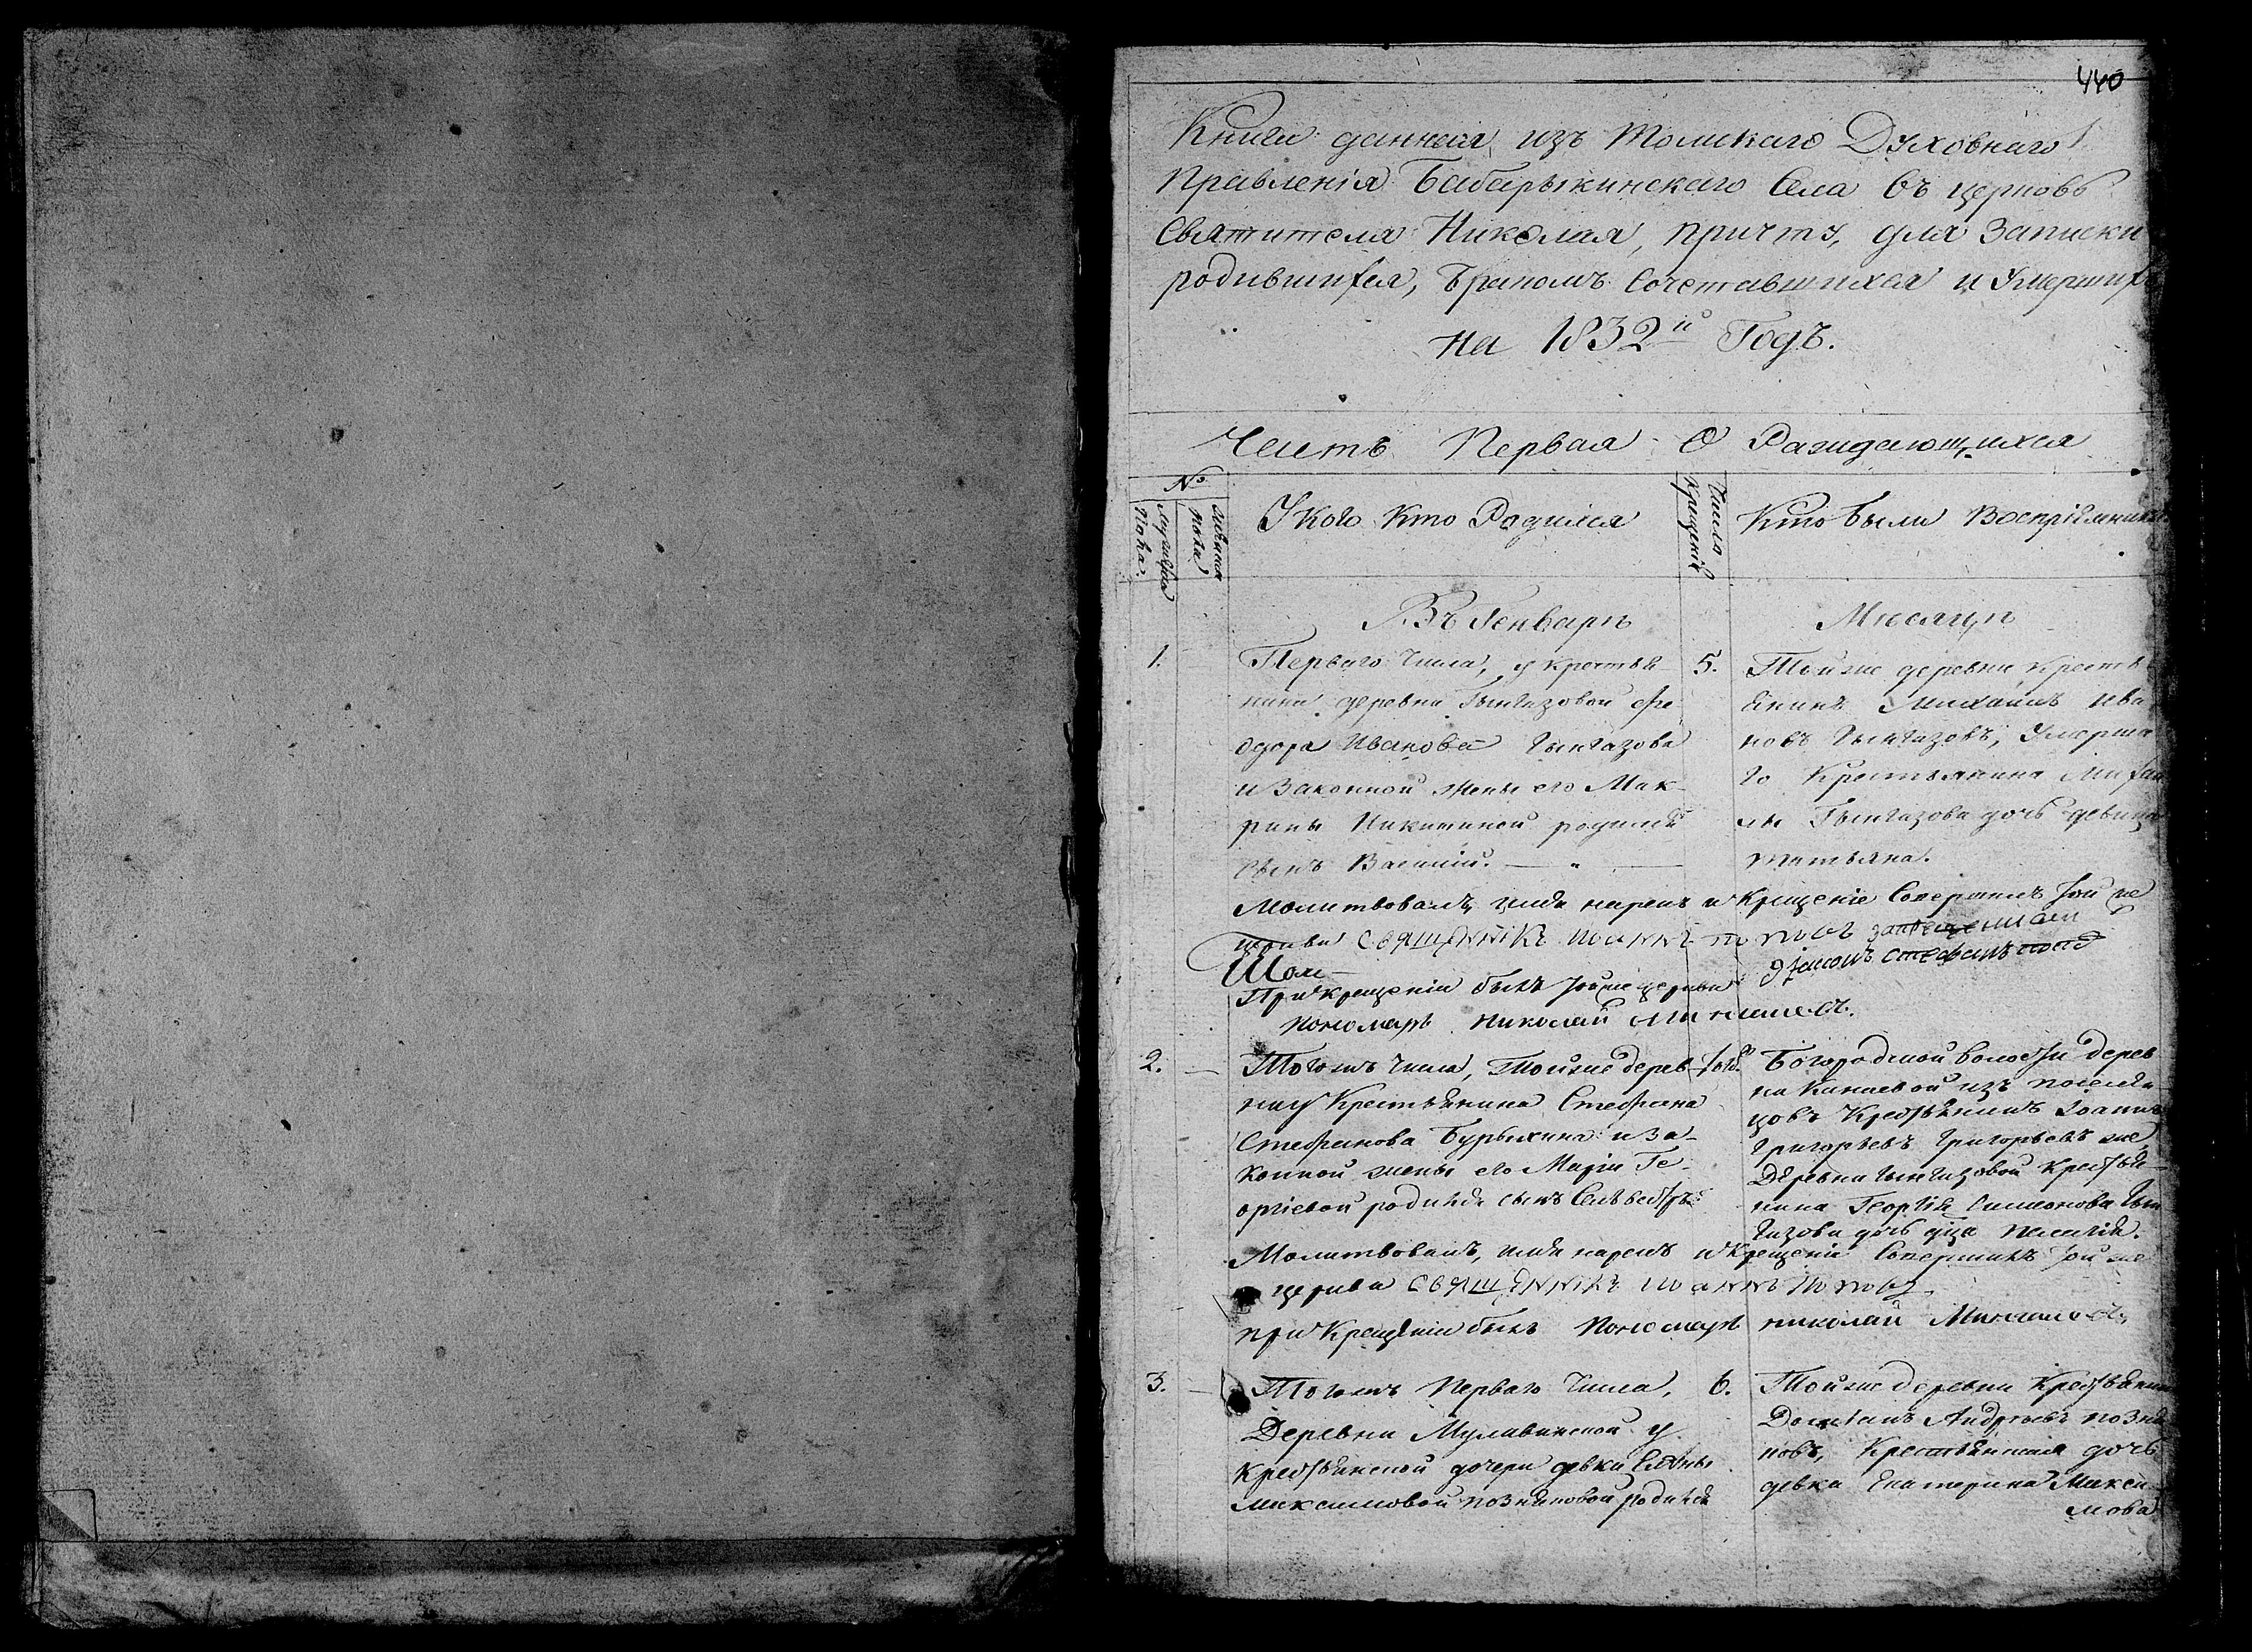 440
Книга данная изъ Томскаго Духовнаго
Правленія Бабарыкинскаго Села въ церковь
Святителя Николая, причту, для записки
родившихся, бракомъ Сочетавшихся и Умершихъ
на 1832й Годъ.
Часть Первая О Раждающихся
№
Мужеска Пола.
Женска Пола
У кого Кто Родился
Число Крещенія
Кто были Воспріемники
Въ Генварѣ
Мѣсяцѣ
1.
Перваго числа, у крестья-
нина деревни Гынгазовой Фе
одора Иванова Гынгазова
и Законной жены его Мак-
рины Никитиной родился
сынъ Василій.
5.
Тойже деревни кресть
янинъ Михаилъ Ива
новъ Гынгазовъ, Умерша
го Крестьянина Михаи
лы Гынгазова дочь девица
Татьяна.
Молитвовалъ, имя нарекъ и Крещеніе Совершилъ той же
церкви священникъ Иоаннъ Поповъ
При крещеніи былъ тойже церкви
пономарь Николай
2.
Тогожъ числа, Тойже дерев-
ни у Крестьянина Стефана
Стефанова Бурыхина и За-
конной жены его Маріи Ге-
оргіевой родился сынъ Сельвестръ
Богородской волости дерев
ни Канаевой изъ поселен
цовъ Крестьянинъ Іоаннъ
Григорьевъ Григорьевъ же
Деревни Гынгазовой Крестья-
нина Георгія Симеонова Гын
газова дочь дца Пелагія.
Молитвовалъ, имя нарекъ и Крещеніе Совершилъ той же
церкви священникъ Иоаннъ Поповъ
при Крещеніи былъ Пономарь Николай
3.
Тогожъ Перваго Числа,
Деревни Мулавинской у
Крестьянской дочери девки Елены
Максимовой Позняковой родился
6.
Тойже деревни Крестьянин
Андреевъ Позня
ковъ, Крестьянская дочь
девка Екатерина Макси
мова